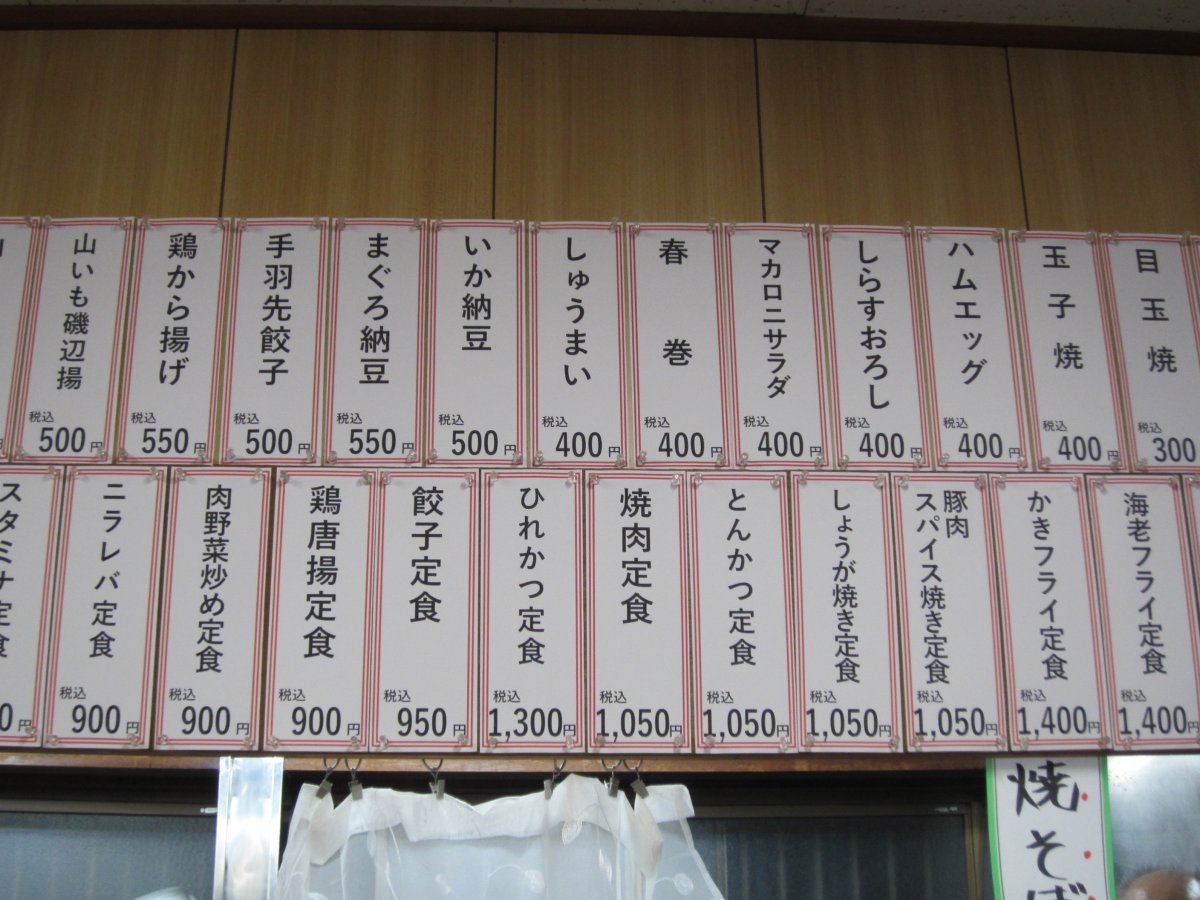 目玉焼
税込
300
玉子焼
税込
400円
ハムエッグ
税込
400円
しらすおろし
税込
400円
マカロニサラダ
税込
400円
春巻
税込
400円
しゅうまい
税込
400円
いか納豆
税込
500円
まぐろ納豆
税込
550円
手羽先餃子
税込
500円
鶏から揚げ
税込
550円
山いも磯辺揚
税込
500円
海老フライ定食
税込
1,400円
かきフライ定食
税込
1,400円
豚肉
スパイス焼き定食
税込
1,050円
しょうが焼き定食
税込
1,050円
とんかつ定食
税込
1,050円
焼肉定食
税込
1,050円
ひれかつ定食
税込
1,300円
餃子定食
税込
950円
鶏唐揚定食
税込
900円
肉野菜炒め定食
税込
900円
ニラレバ定食
税込
900円
スタミナ定食
0円
焼そば